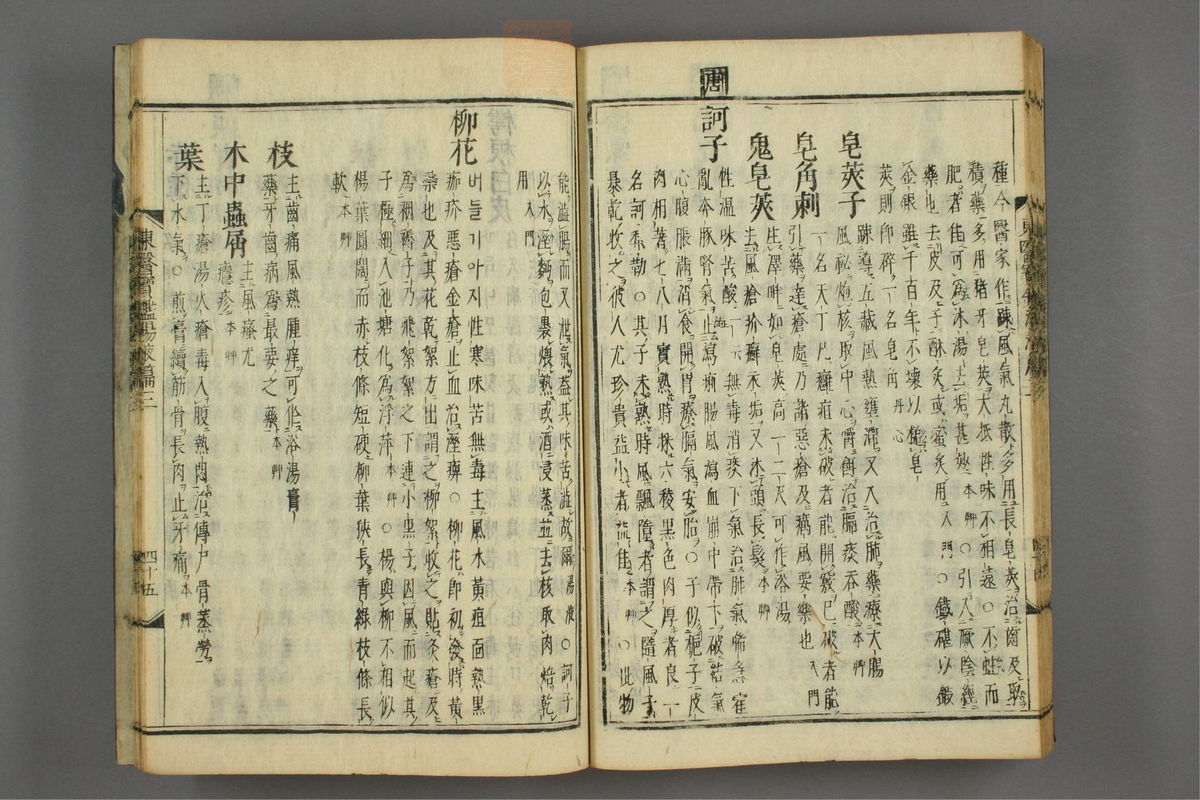 種今醫家作踈風氣丸散多用長皂莢治齒及取
積藥多用猪牙皂莢大抵性味不相遠○不蛀而
肥者佳可爲沐湯去垢甚妙本艸○引入厥陰經
藥也去皮及子酥灸或蜜炙用入門○鐵砧以鍛
金銀雖千百年不壞以 皂
莢則卽碎一名皂角丹心
皂莢子
踈導五藏風熱壅滯又入治肺藥療大腸
風秘炮核取中心嚼餌治膈痰吞酸本艸
皂角刺
一名天丁凡癰疽未破者能開竅已破者能
引藥達瘡處乃諸惡瘡及癘風要藥也入門
鬼皂莢
生澤畔如皂莢高一二尺可作浴湯
去風瘡疥癬 垢又沐頭長髮本艸
唐
訶子
性溫味苦酸一云無毒消痰下氣治肺氣喘急霍
亂奔豚腎氣止瀉痢腸風瀉血崩中帶下破結氣
心腹脹滿消食開胃療膈氣安胎○子似梔子皮
肉相著七八月實熟時採六稜黑色肉厚者良一
名訶梨勒○其子未熟時風飄墮者謂之隨風子
暴乾收之彼人尤珍貴益小者益佳本艸○此物
能澁腸而又泄氣盖其味苦澁故爾湯液○訶子
以水 麪包裹煨熟或酒浸蒸並去核取肉焙乾
用入門
柳花
버들기아지性寒味苦無毒主風水黃疸面熱黑
痂疥惡瘡金瘡止血治濕痺○柳花卽初發時黃
蘂也及其花乾絮方出謂之柳絮收之貼灸瘡及
爲裀褥子乃飛絮絮之下連小黑子因風而起其
子極細入池塘化爲浮萍本艸○楊與柳不相似
楊葉圓闊而赤枝條短硬柳葉狹長靑綠枝條長
軟本艸
枝
主齒痛風熱腫痒可作浴湯膏
藥牙齒病爲最要之藥本艸
木中蟲屑
主風瘙尤
癮疹本艸
葉
主丁瘡湯火瘡毒入腹熱悶治傳尸骨蒸勞
下水氣○煎膏續筋骨長肉止牙痛本艸
東醫寶鑑湯液編三
四十五